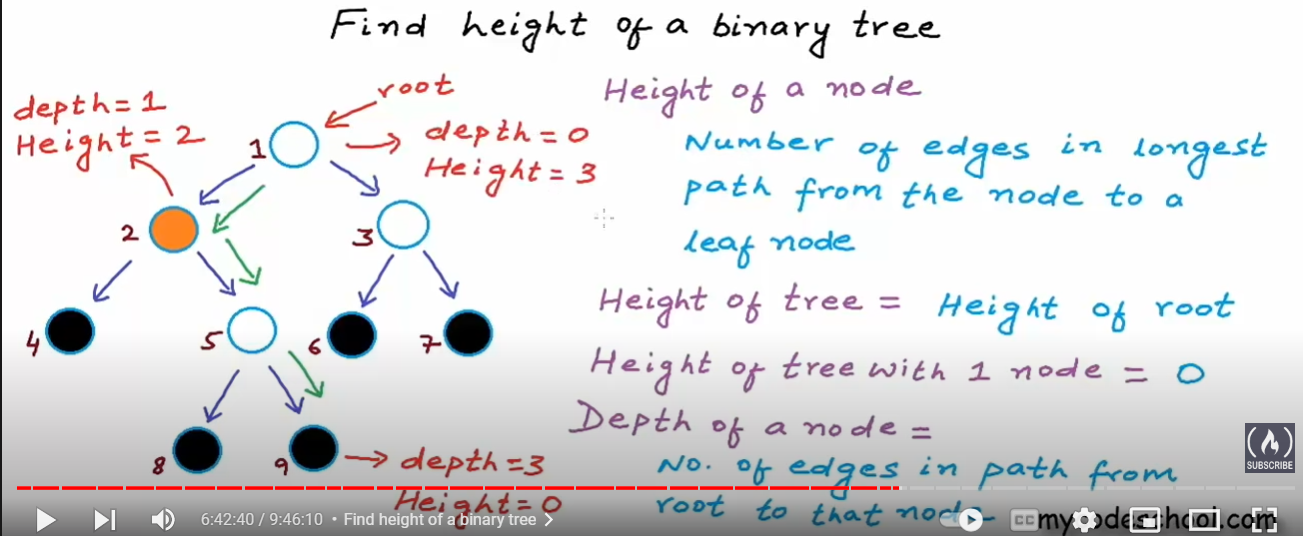 Find height of a binary tree
depth = 1
Height = 2
root
1
depth = 0
Height = 3
2
3
4
5
6
7
8
9
depth = 3
Height = 0
Height of a node
Number of edges in longest
path from the node to a
leaf node
Height of tree = Height of root
Height of tree with 1 node = 0
Depth of a node =
No. of edges in path from
root to that node
SUBSCRIBE
6:42:40 / 9:46:10 • Find height of a binary tree
CC
mycodeschool.com